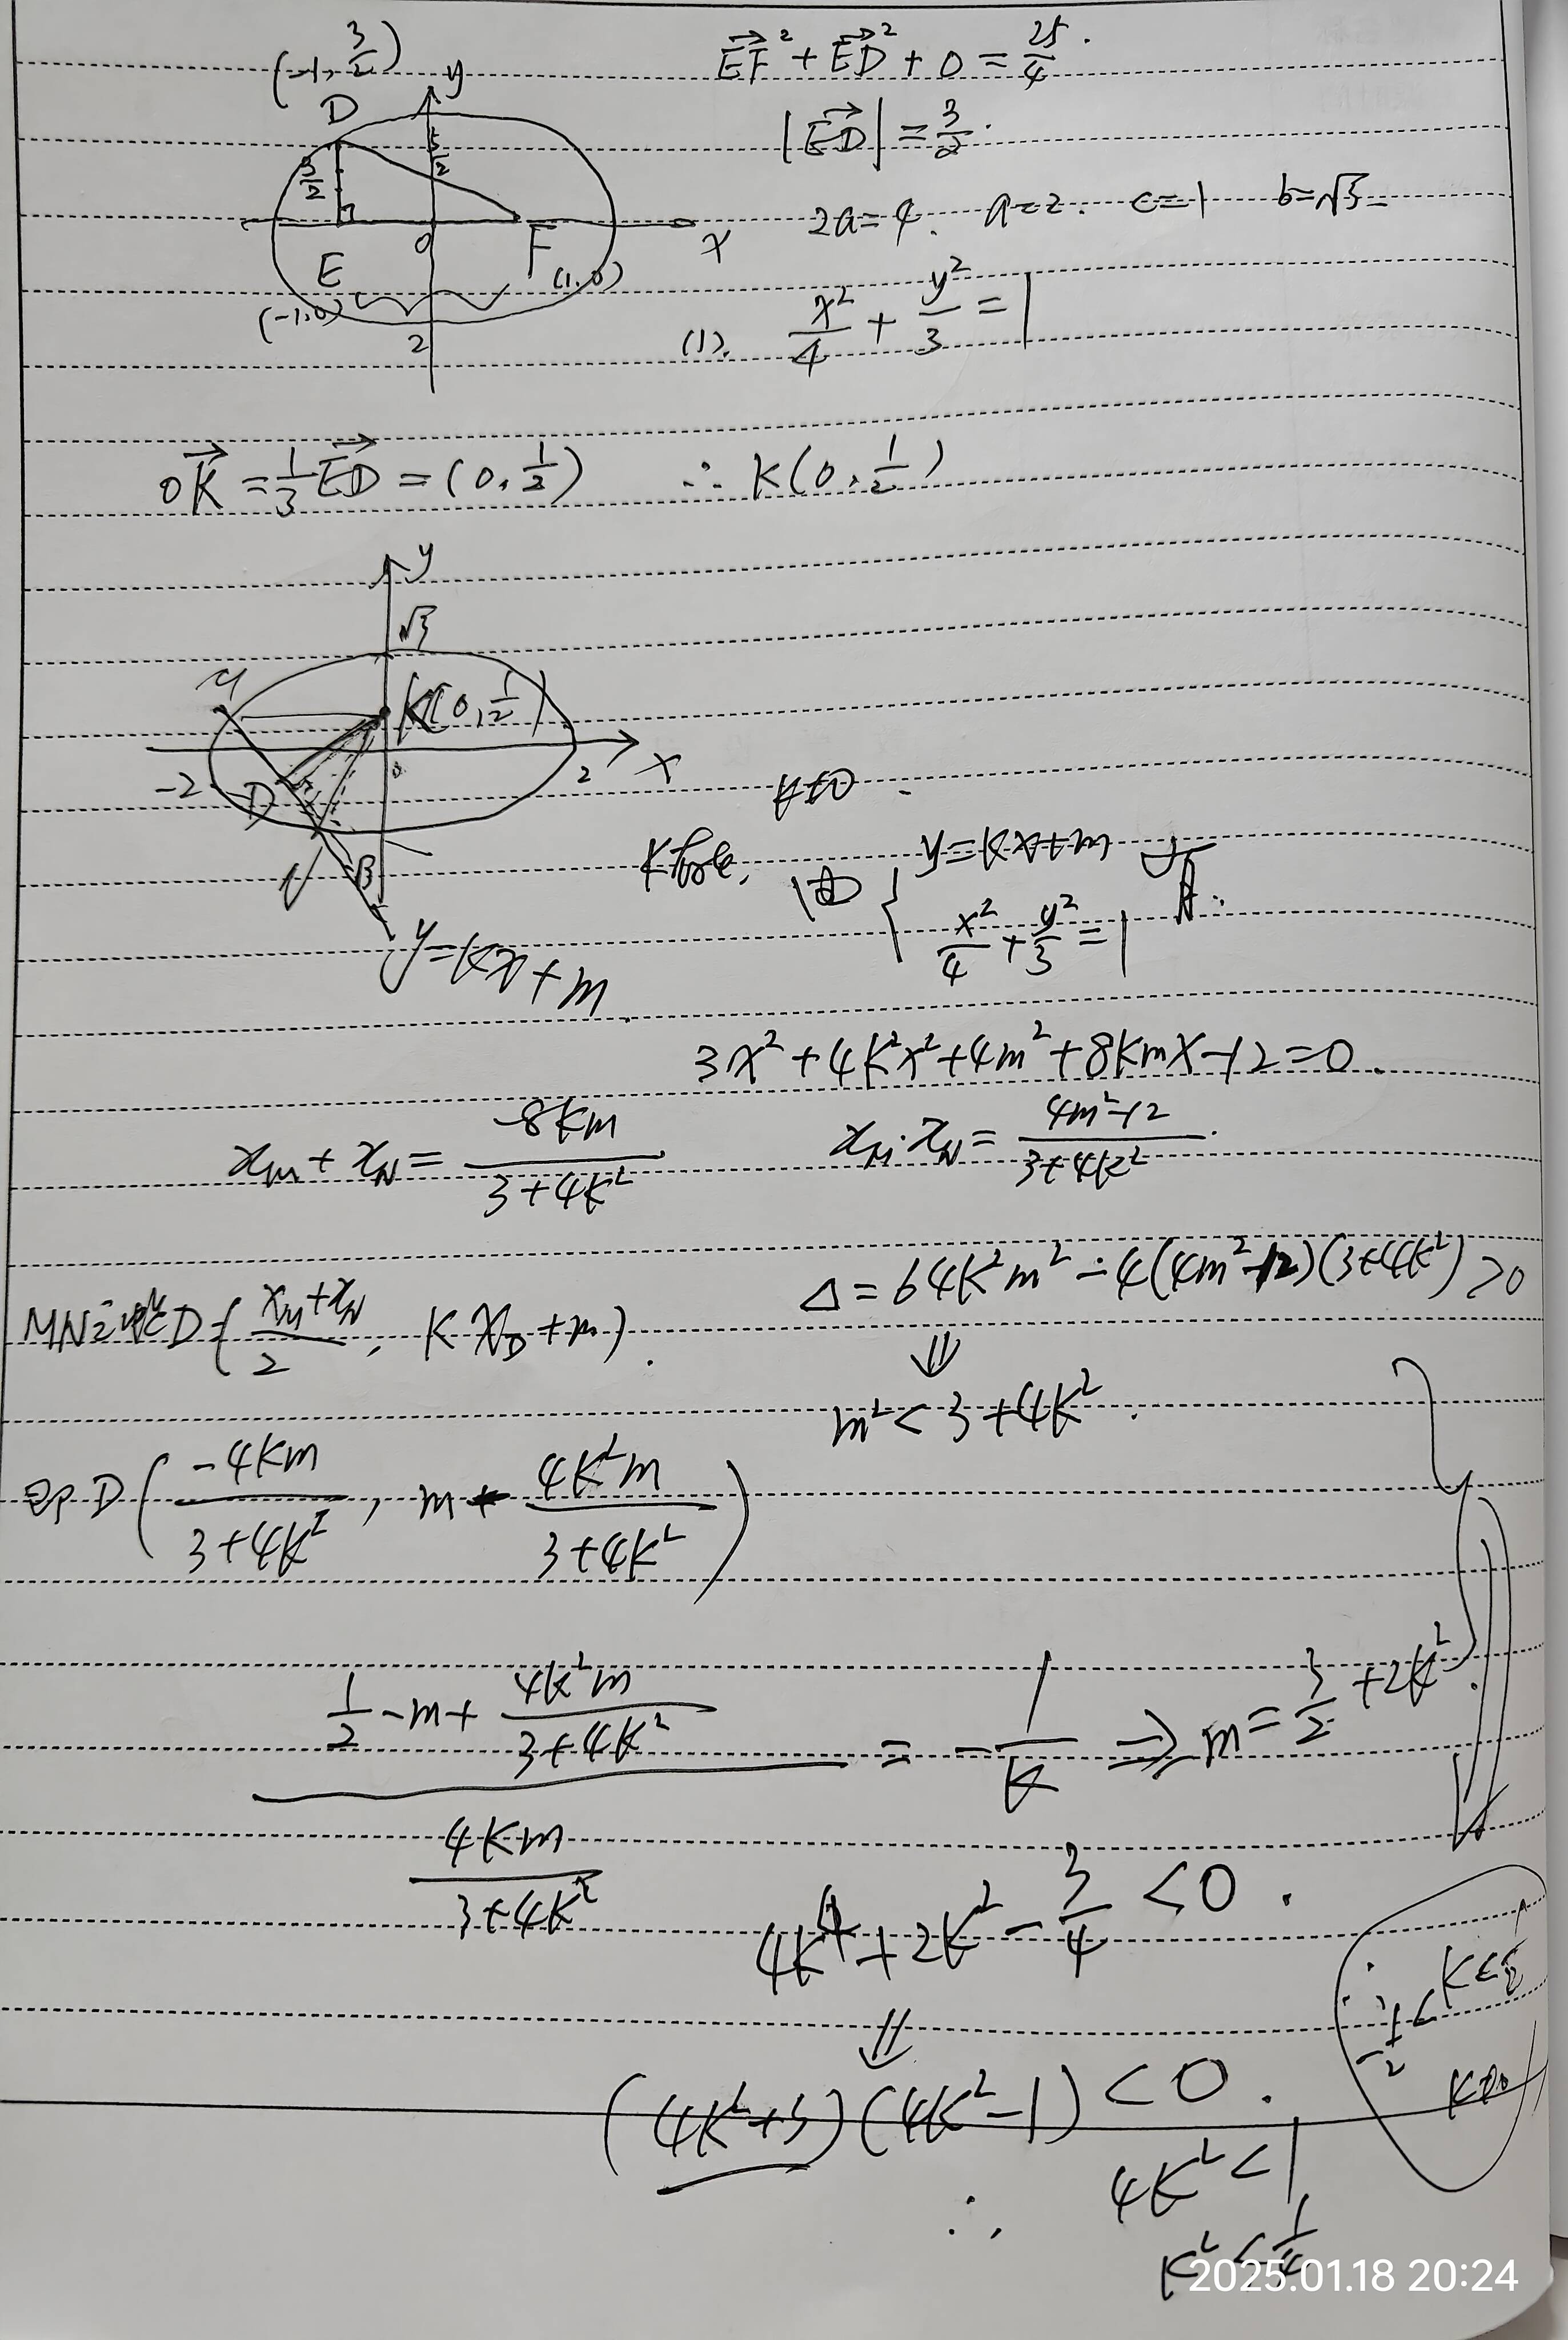 (-1, 3/2) y
D
3/2 5/2
E O F x
(-1,0) (1,0)
2
EF⃗² + ED⃗² + 0 = 25/4.
|ED⃗| = 3/2.
2a=4. a=2. c=1 b=√3
(1). x²/4 + y²/3 = 1
OK⃗ = 1/3 ED⃗ = (0, 1/2) ∴ K(0, 1/2)
y
√3
M K(0, 1/2)
-2 D 0 2 x
N √3
y=kx+m.
k≠0.
由 { y=kx+m
x²/4 + y²/3 = 1
3x²+4k²x²+4m²+8kmx-12=0.
x_M+x_N = -8km/(3+4k²) x_M·x_N = (4m²-12)/(3+4k²).
Δ=64k²m²-4(4m²-12)(3+4k²)>0
MN之中点D=((x_M+x_N)/2, kx_D+m).
⇓
m²<3+4k².
即D(-4km/(3+4k²), m-4k²m/(3+4k²))
(1/2-m+4k²m/(3+4k²))/(4km/(3+4k²)) = -1/k ⇒ m=3/2+2k².
4k⁴+2k²-3/4<0.
⇓
(4k²+3)(4k²-1)<0.
∴ 4k²<1
k²<1/4
∴ -1/2<k<1/2
k≠0
2025.01.18 20:24